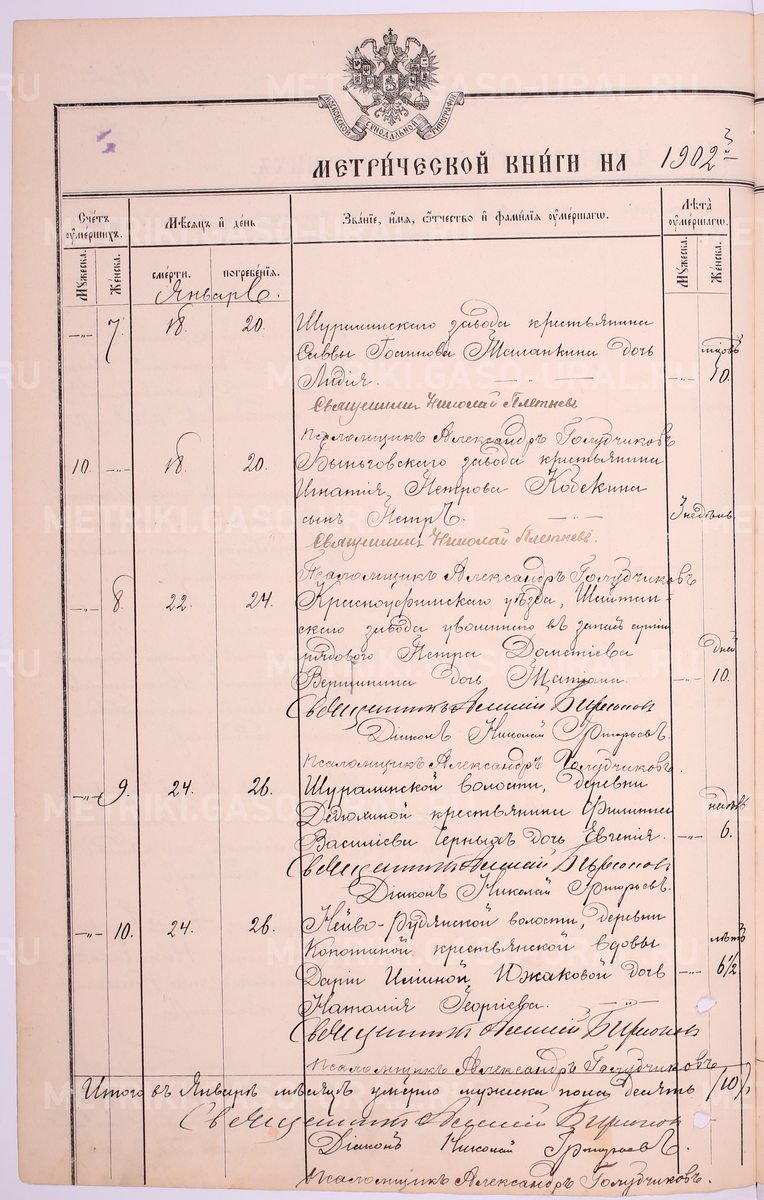 МОСКОВСКОЙ СѴНОДАЛЬНОЙ ТИПОГРАФІИ
МЕТРИ́ЧЕСКОЙ КНИ́ГИ НА 1902 й
Сче́тъ ᲂу҆ме́ршихъ.
Мꙋ́жеска.
Же́нска.
Мѣ́сѧцъ и҆ де́нь
сме́рти.
погребе́нїѧ.
Зва́нїе, и҆́мѧ, ѻ҆́тчество и҆ фами́лїѧ ᲂу҆ме́ршагѡ.
Лѣ́та ᲂу҆ме́ршагѡ.
Мꙋ́жеска.
Же́нска.
Январь.
-„- 7. 18. 20. Шуралинскаго завода крестьянина
Саввы Таланкина дочь
Лидія. -„- 10.
Священникъ Николай Плетневъ
Псаломщикъ Александръ Голудчиковъ
10. -„- 18. 20. Быньговскаго завода крестьянина
Игнатія Петрова Кобекина
сынъ Петръ. 3 недѣль
Священникъ Николай Плетневъ.
Псаломщикъ Александръ Голудчиковъ
-„- 8. 22. 24. Красноуфимскаго уѣзда, Шайтан-
скаго завода уволеннаго въ запасъ арміи
рядового Петра Дометіева дней
Вершинина дочь Татіана. -„- 10.
Священникъ Алексій
Діаконъ Николай Григорьевъ.
Псаломщикъ Александръ Голудчиковъ.
-„- 9. 24. 26. Шуралинской волости, деревни
крестьянина Филиппа недѣль
Василіева Черныхъ дочь Евгенія. -„- 6.
Священникъ Алексій
Діаконъ Николай Григорьевъ.
-„- 10. 24. 26. Нейво-Рудянской волости, деревни
Копотиной крестьянской вдовы лѣтъ
Даріи Ижаковой дочь -„- 6½
Наталія Георгіева. -„-
Священникъ Алексій
Псаломщикъ Александръ Голудчиковъ
Итого въ Январѣ мѣсяцѣ умерло мужска пола десять /10/,
Священникъ Алексій
Діаконъ Николай Григорьевъ.
Псаломщикъ Александръ Голудчиковъ.
METRIKI.GASO-URAL.RU